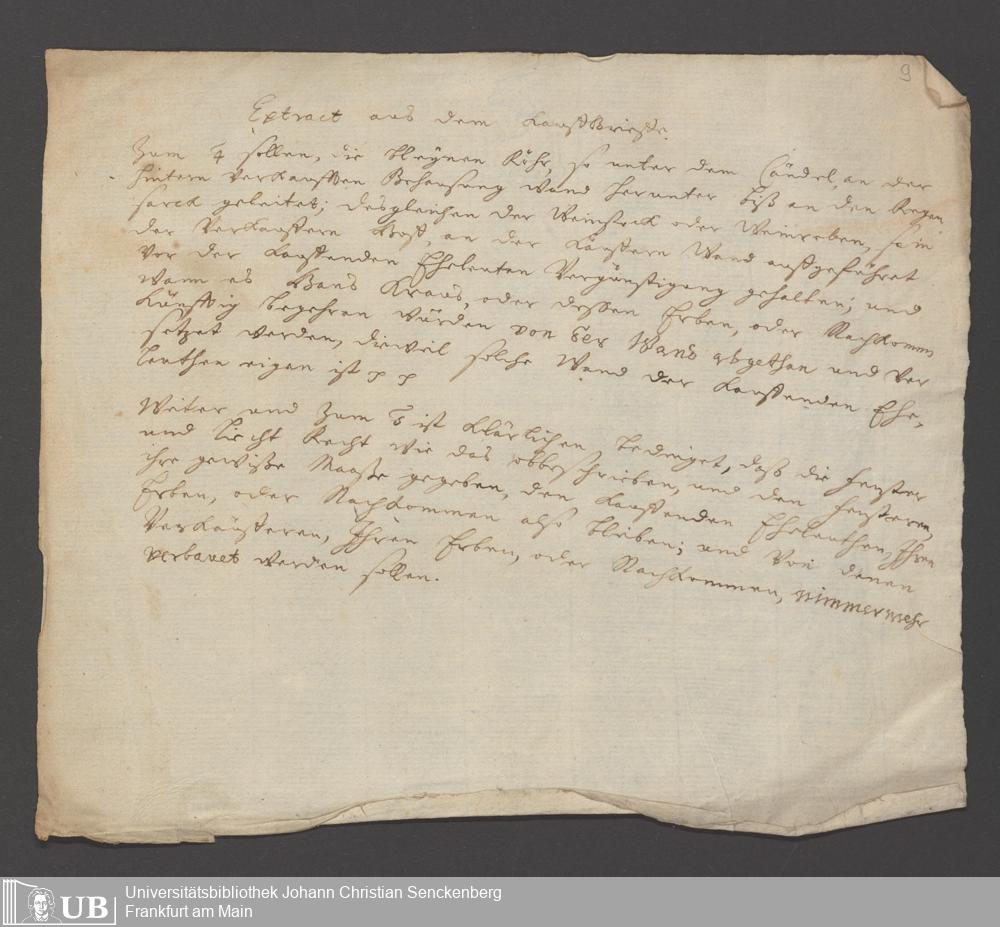 9
Extract aus dem Kauffbrieffe.
Zum 4 sollen, die bleynen Röhr, so unter dem Cändel, an der
hintern Verkaufften Behausung Wand herunter biß an den Regen
sarck geleitet; desgleichen der Weinstock oder Weinreben, so in
der Verkauffern Hoff, an der Käuffern Wand auffgeführet
vor der Kauffenden Eheleuten Vergünstigung gehalten; und
wann es Hans Kraus, oder dessen Erben, oder Nachkomm
künfftig begehren würden von der Wand abgethan und ver
setzet werden, dieweil solche Wand der Kauffenden Ehe,
leuthen eigen ist pp
Weiter und Zum 5 ist klärlichen bedinget, daß die Fenster
und Liecht Recht wie das obbeschrieben, und den Fensteren,
ihre gewisse Maaße gegeben, den Kauffenden Eheleuthen, Ihren
Erben, oder Nachkommen also bleiben; und von denen
Verkäufferen, Ihren Erben, oder Nachkommen, nimmermehr
verbauet werden sollen.
UB
Universitätsbibliothek Johann Christian Senckenberg
Frankfurt am Main